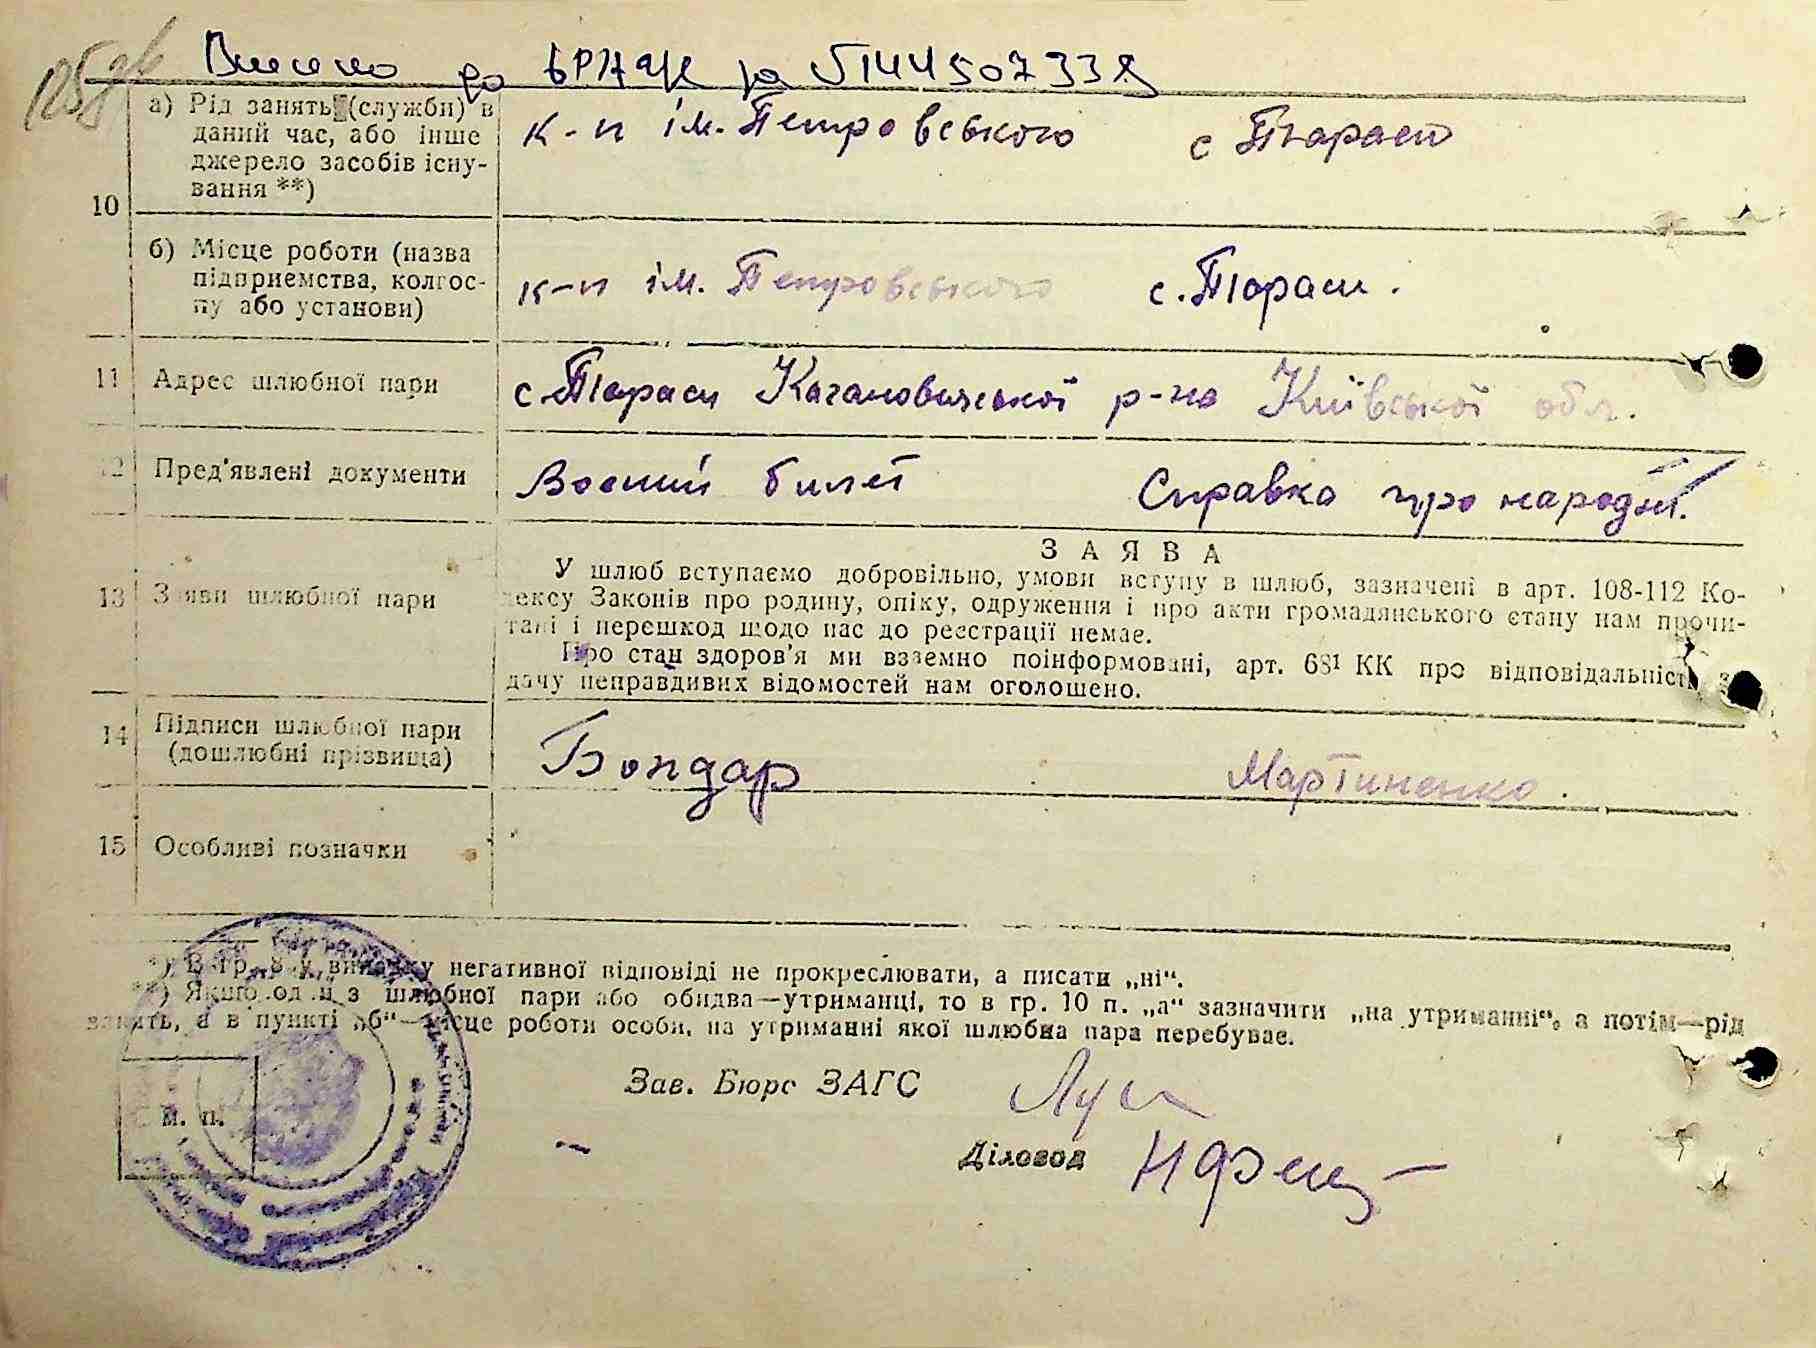 125
Внесено до ДРАЦС за №144507338
а) Рід занять (служби) в
даний час, або інше
джерело засобів існу-
вання **)
к-п ім. Петровського с Тараси
10
б) Місце роботи (назва
підприємства, колгос-
пу або установи)
к-п ім. Петровського с. Тараси.
11 Адрес шлюбної пари
с. Тараси Кагановичської р-на Київської обл.
12 Пред'явлені документи
Воєний билет Справка про народж.
13 Заяви шлюбної пари
ЗАЯВА
У шлюб вступаємо добровільно, умови вступу в шлюб, зазначені в арт. 108-112 Ко-
дексу Законів про родину, опіку, одруження і про акти громадянського стану нам прочи-
тані і перешкод щодо нас до реєстрації немає.
Про стан здоров'я ми взаємно поінформовані, арт. 68¹ КК про відповідальність за
дачу неправдивих відомостей нам оголошено.
14 Підписи шлюбної пари
(дошлюбні прізвища)
Бондар Мартиненко.
15 Особливі позначки
*) В гр. „8“ у випадку негативної відповіді не прокреслювати, а писати „ні“.
**) Якщо один з шлюбної пари або обидва—утриманці, то в гр. 10 п. „а“ зазначити „на утриманні“, а потім—рід
занять, а в пункті „б“—місце роботи особи, на утриманні якої шлюбна пара перебуває.
Зав. Бюро ЗАГС
м. п.
Діловод